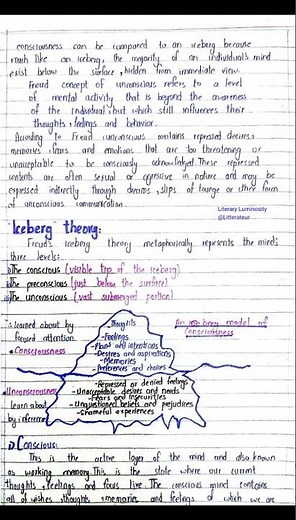 consciousness can be compared to an iceberg because
much like an iceberg, the majority of an individual's mind
exist below the surface, hidden from immediate view.
Freud concept of unconscious refers to a level
of mental activity that is beyond the awareness
of the individual but which still influences their
thoughts, feelings and behavior.
According to Freud, unconscious contains repressed desires,
memories, fears and emotions that are too threatening or
unacceptable to be consciously acknowledged. These repressed
contents are often sexual or aggressive in nature and may be
expressed indirectly through dreams, slips of tounge or other form
of unconscious communication.
Literary Luminosity
@Litterateur
Iceberg theory:
Freud's iceberg theory metaphorically represents the mind's
three levels:
The conscious (visible tip of the iceberg)
The preconscious (just below the surface)
The unconscious (vast submerged portion)
An iceberg model of
consciousness
is learned about by
focused attention.
Consciousness
- Thoughts
- Feelings
- Plans and intentions
- Desires and aspirations
- Memories
- Preferences and choices
Unconsciousness
learn about
by inference
- Repressed or denied feelings
- Unacceptable desires and needs
- Fears and insecurities
- Unquestioned beliefs and prejudices
- Shameful experiences
1) Conscious:
This is the active layer of the mind and also known
as working memory. This is the state where our current
thoughts, feelings and focus live. The conscious mind contains
all of wishes, thoughts, memories, and feelings of which we are